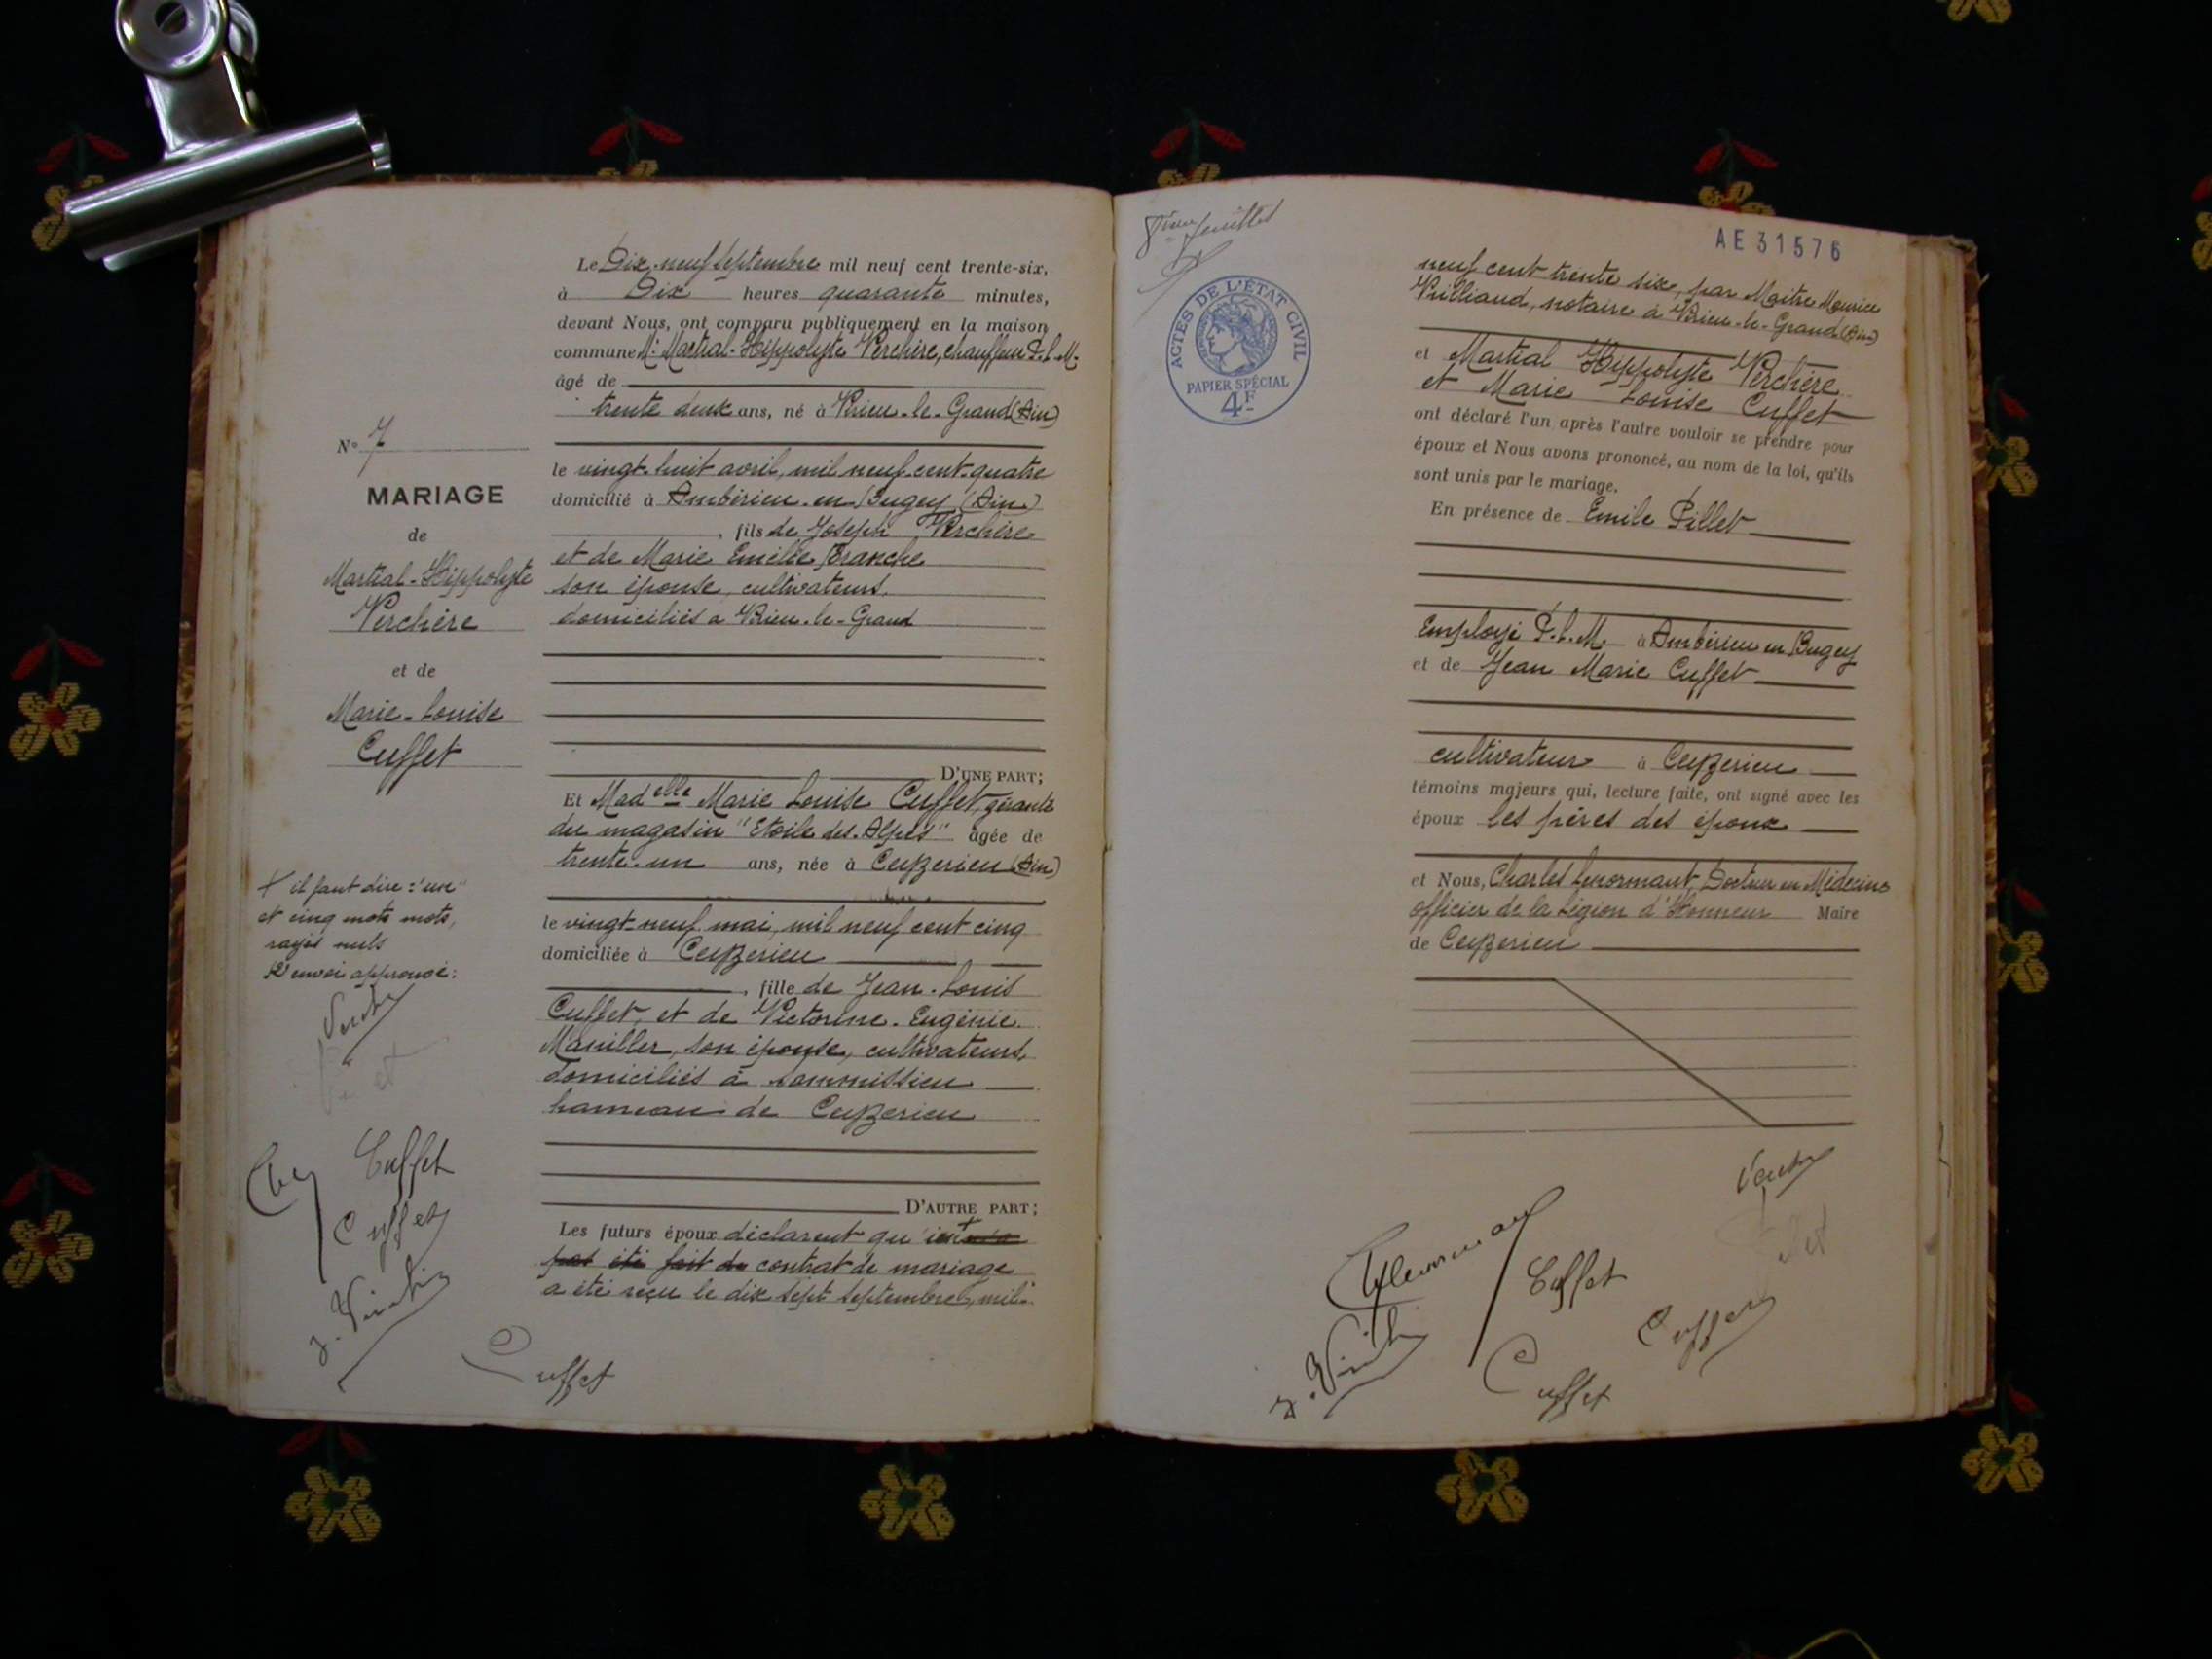 Le Dix-neuf Septembre mil neuf cent trente-six,
à Dix heures quarante minutes,
devant Nous, ont comparu publiquement en la maison
commune Mr Martial-Hippolyte Verchère, chauffeur P.L.M.
âgé de
trente deux ans, né à Virieu-le-Grand (Ain)
le vingt-huit avril, mil neuf cent quatre
domicilié à Ambérieu-en-Bugey (Ain)
, fils de Joseph Verchère
et de Marie Emélie Branche
son épouse, cultivateurs,
domiciliés à Virieu-le-Grand
D'UNE PART;
Et Madelle Marie Louise Cuffet, gérante
du magasin "Etoile des Alpes" âgée de
trente-un ans, née à Ceyzerieu (Ain)
le vingt-neuf mai, mil neuf cent cinq
domiciliée à Ceyzerieu
, fille de Jean-Louis
Cuffet, et de Victorine-Eugénie
Maniller, son épouse, cultivateurs,
domiciliés à Lammissieu
hameau de Ceyzerieu
D'AUTRE PART;
Les futurs époux déclarent qu'
pas été fait de contrat de mariage
a été reçu le dix sept septembre, mil
N° 7
MARIAGE
de
Martial-Hippolyte
Verchère
et de
Marie-Louise
Cuffet
+ il faut dire : "un"
et cinq mots mots,
rayés nuls
Renvoi approuvé :
Cuffet
Cuffet
Cuffet
feuillet
AE31576
ACTES DE L'ÉTAT CIVIL
PAPIER SPÉCIAL
4F
neuf cent trente six, par Maitre Maurice
Vulliaud, notaire à Virieu-le-Grand (Ain)
et Martial Hippolyte Verchère
et Marie Louise Cuffet
ont déclaré l'un après l'autre vouloir se prendre pour
époux et Nous avons prononcé, au nom de la loi, qu'ils
sont unis par le mariage.
En présence de Emile Pillet
Employé P.L.M. à Ambérieu en Bugey
et de Jean Marie Cuffet
cultivateur à Ceyzerieu
témoins majeurs qui, lecture faite, ont signé avec les
époux les pères des époux
et Nous, Charles Lenormant, Docteur en Médecine
Officier de la Légion d'Honneur Maire
de Ceyzerieu
Cuffet
Cuffet
Cuffet